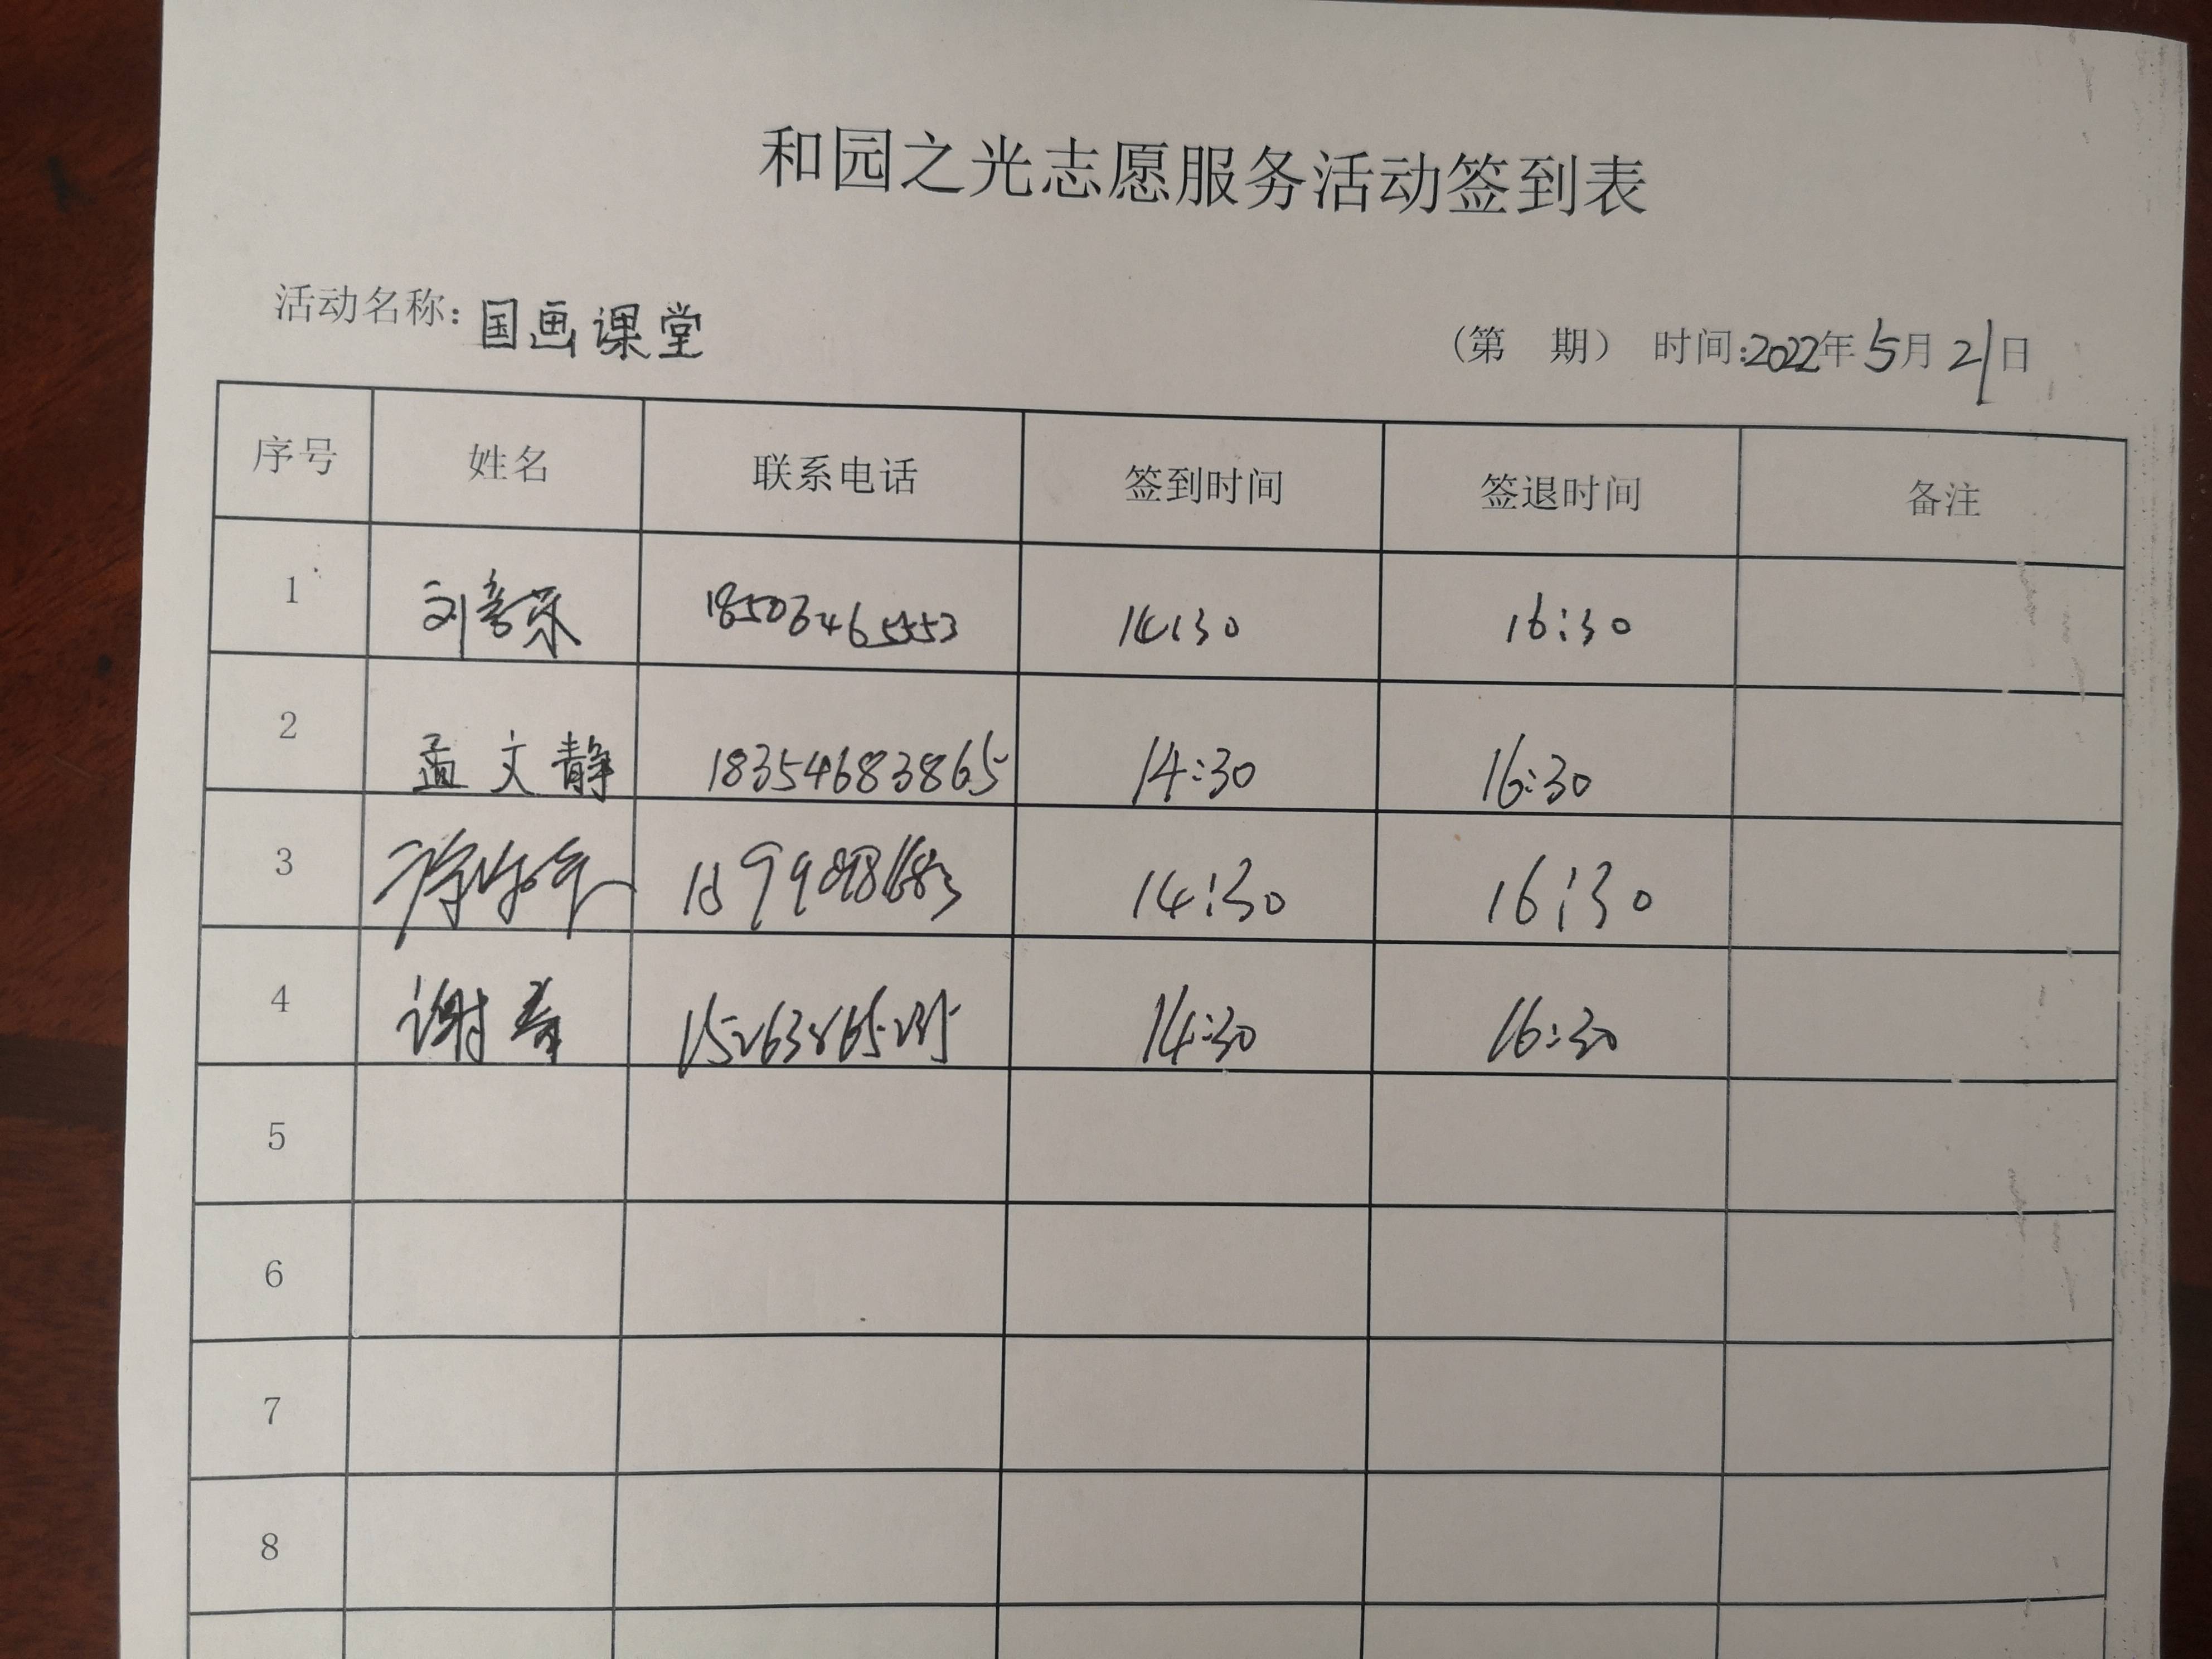 和园之光志愿服务活动签到表
活动名称：国画课堂 （第 期） 时间：2022年5月21日
序号 姓名 联系电话 签到时间 签退时间 备注
1 刘音乐 18506465553 14:30 16:30
2 孟文静 18354683865 14:30 16:30
3 14:30 16:30
4 谢春 14:30 16:30
5
6
7
8